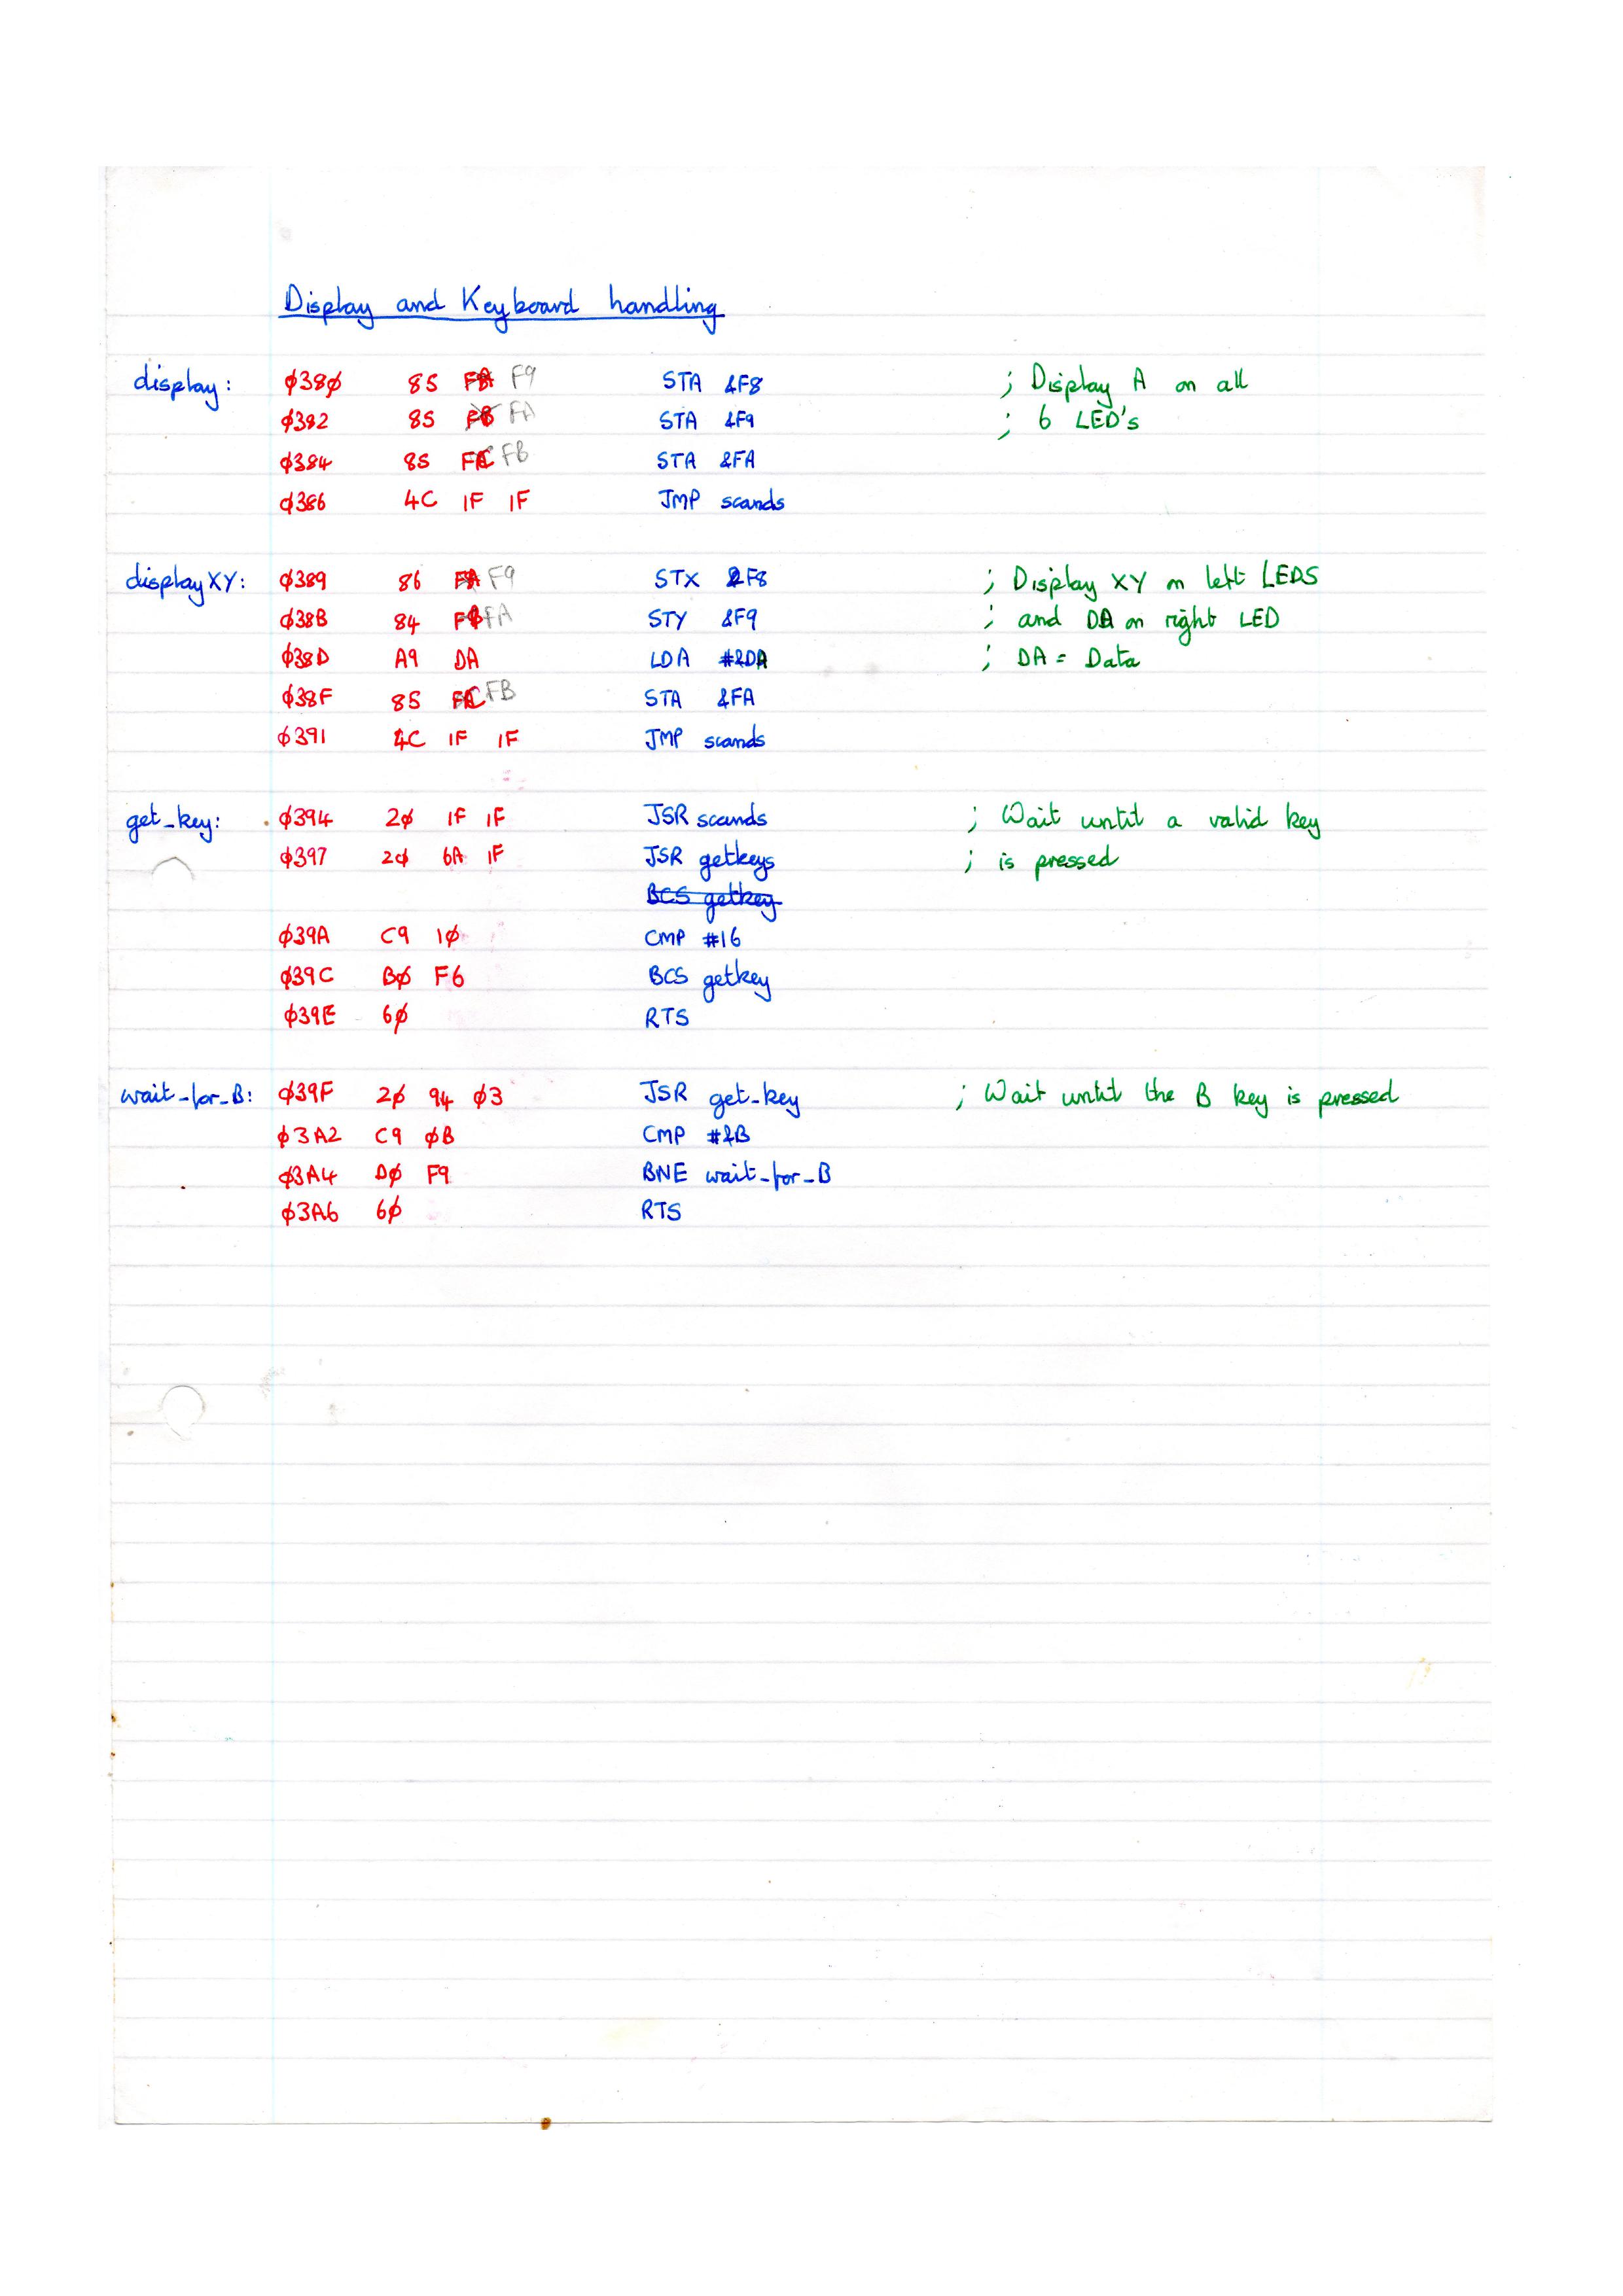 Display and Keyboard handling
display: φ38φ 85 F9 STA &F8 ; Display A on all
φ382 85 FA STA &F9 ; 6 LED's
φ384 85 FB STA &FA
φ386 4C 1F 1F JMP scands
displayXY: φ389 86 F9 STX &F8 ; Display XY on left LEDS
φ38B 84 FA STY &F9 ; and DA on right LED
φ38D A9 DA LDA #&DA ; DA = Data
φ38F 85 FB STA &FA
φ391 4C 1F 1F JMP scands
get_key: φ394 2φ 1F 1F JSR scands ; Wait until a valid key
φ397 2φ 6A 1F JSR getkeys ; is pressed
BCS getkey
φ39A C9 1φ CMP #16
φ39C Bφ F6 BCS getkey
φ39E 6φ RTS
wait_for_B: φ39F 2φ 94 φ3 JSR get_key ; Wait until the B key is pressed
φ3A2 C9 φB CMP #&B
φ3A4 Dφ F9 BNE wait_for_B
φ3A6 6φ RTS